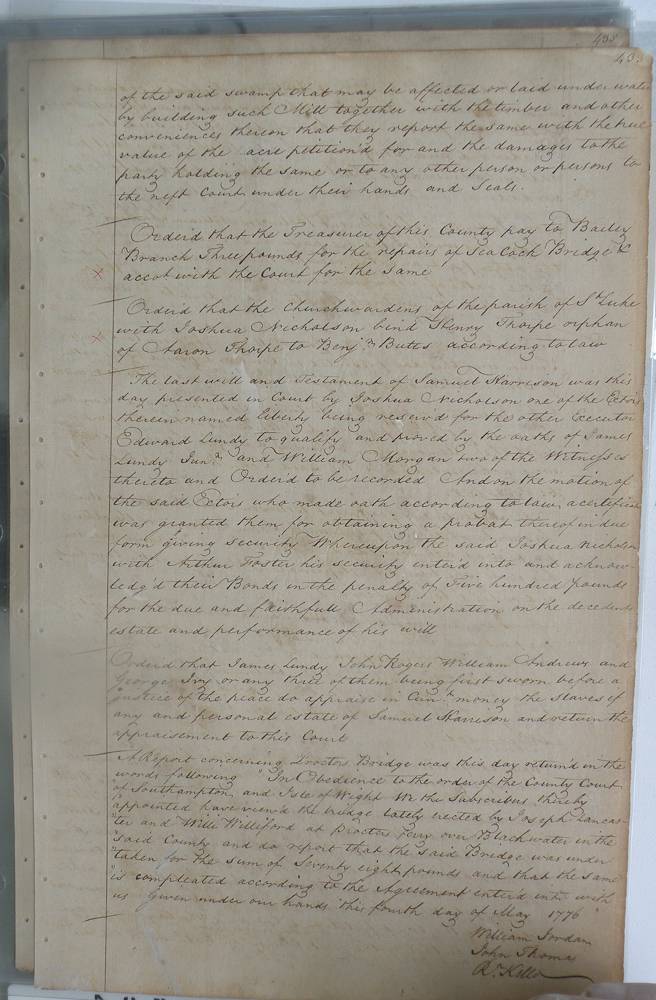 433
43
of the said swamp that may be affected or laid under water
by building such Mill together with the timber and other
conveniences thereon that they report the same with the true
value of the acre petition'd for and the damages to the
party holding the same or to any other person or persons to
the next Court under their hands and Seals.
Orderd that the Treasurer of this County pay to Bailey
Branch Three pounds for the repairs of Sea Cock Bridge &
accot with the Court for the same
Orderd that the Churchwardens of the parish of St Luke
with Joshua Nicholson bind Henry Thorpe orphan
of Aaron Thorpe to Benjn Butts according to law
The last will and Testament of Samuel Harrison was this
day presented in Court by Joshua Nicholson one of the Ectors
therein named liberty being reserv'd for the other Executor
Edward Lundy to qualify and proved by the oaths of James
Lundy Junr and William Morgan two of the Witnesses
thereto and Orderd to be recorded And on the motion of
the said Ectors who made oath according to law a certificate
was granted them for obtaining a probat thereof in due
form giving security Whereupon the said Joshua Nicholson
with Arthur Foster his security enter'd into and acknow-
ledg'd their Bonds in the penalty of Five hundred pounds
for the due and faithfull Administration on the decedents
estate and performance of his will
Orderd that James Lundy John Rogers William Andrews and
George Ivy or any three of them being first sworn before a
justice of the peace do appraise in Curt money the slaves if
any and personal estate of Samuel Harrison and return the
appraisement to this Court
A Report concerning Proctors Bridge was this day return'd in the
words following "In Obedience to the order of the County Court
"of Southampton and Isle of Wight We the Subscribers thereby
"appointed have view'd the bridge lately erected by Joseph Lancas-
"ter and Willi Williford at Proctors ferry over Blackwater in the
"said County and do report that the said Bridge was under
"taken for the sum of Seventy eight pounds and that the same
"is compleated according to the Agreement enter'd into with
us Given under our hands this fourth day of May 1776"
William Jordan
John Thomas
Rd Kello